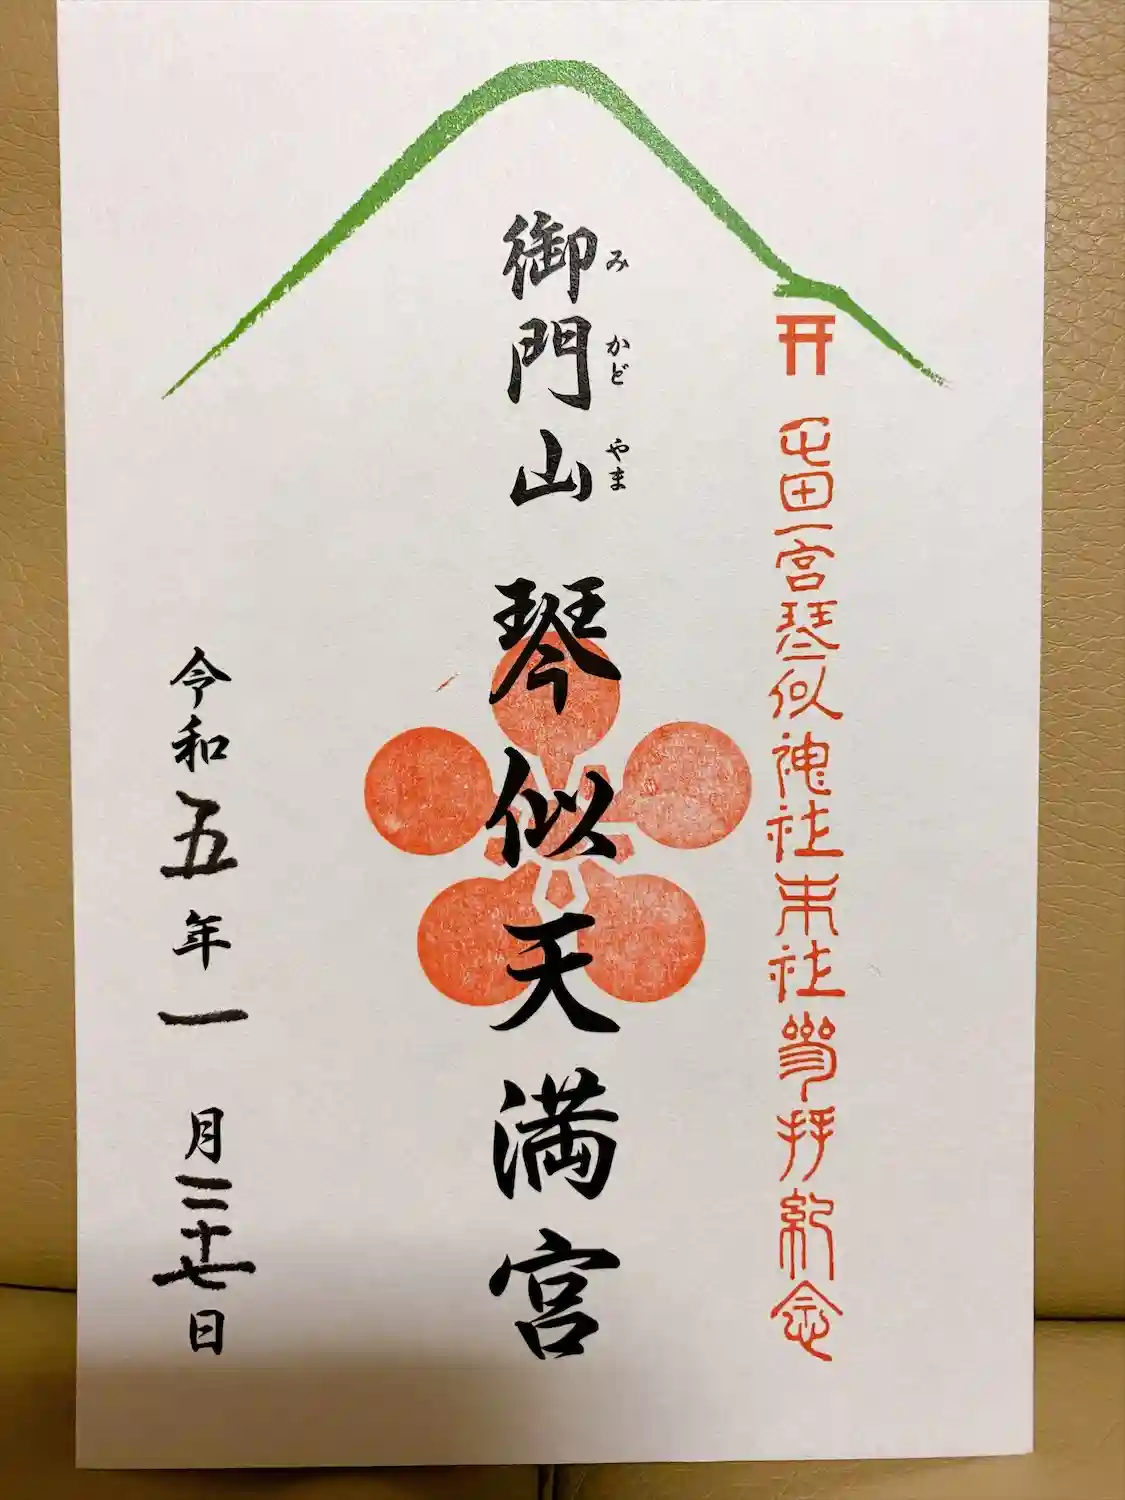 屯田一宮琴似神社末社参拝紀念
みかどやま
御門山 琴似天満宮
令和五年一月二十七日